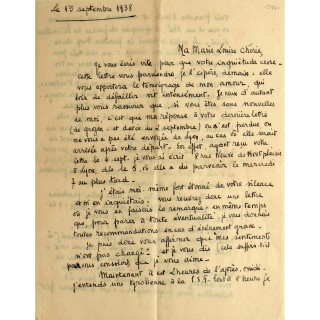 Le 13 septembre 1938
Ma Marie Louise Chérie,
Je vous écris vite par que votre inquiétude cesse.
cette lettre vous parviendra, je l'espère, demain : elle
vous apportera le témoignage de mon amour, qui
loin de défaillir vit intensément. Je suis d'autant
plus vous rassurer que, si vous êtes sans nouvelles
de moi, c'est que ma réponse à votre dernière lettre
(de et datée du 4 septembre) ou s'est perdue, ou
ne vous a pas été envoyée de Lyon au cas où elle serait
arrivée après votre départ. En effet, ayant reçu votre
lettre le 6 sept. je vous ai écrit 8 rue Neuve de
à Lyon, dès le 5, où elle a dû parvenir le mercredi
au plus tard.
J'étais moi-même fort étonné de votre silence
et m'en inquiétais. vous recevrez donc une lettre
où je vous en faisais la remarque, en même temps
que, pour parer à toute éventualité, je vous donnais
toutes recommandations en cas d'événement grave.
Je puis donc vous affirmer que mes sentiments
n'ont pas changé - et je vous dis (cela suffira-t-il
pour vous consoler) que je vous aime.
Maintenant il est 2 heures de l'après-midi.
j'entends une à la T.S.F. tout à l'heure je